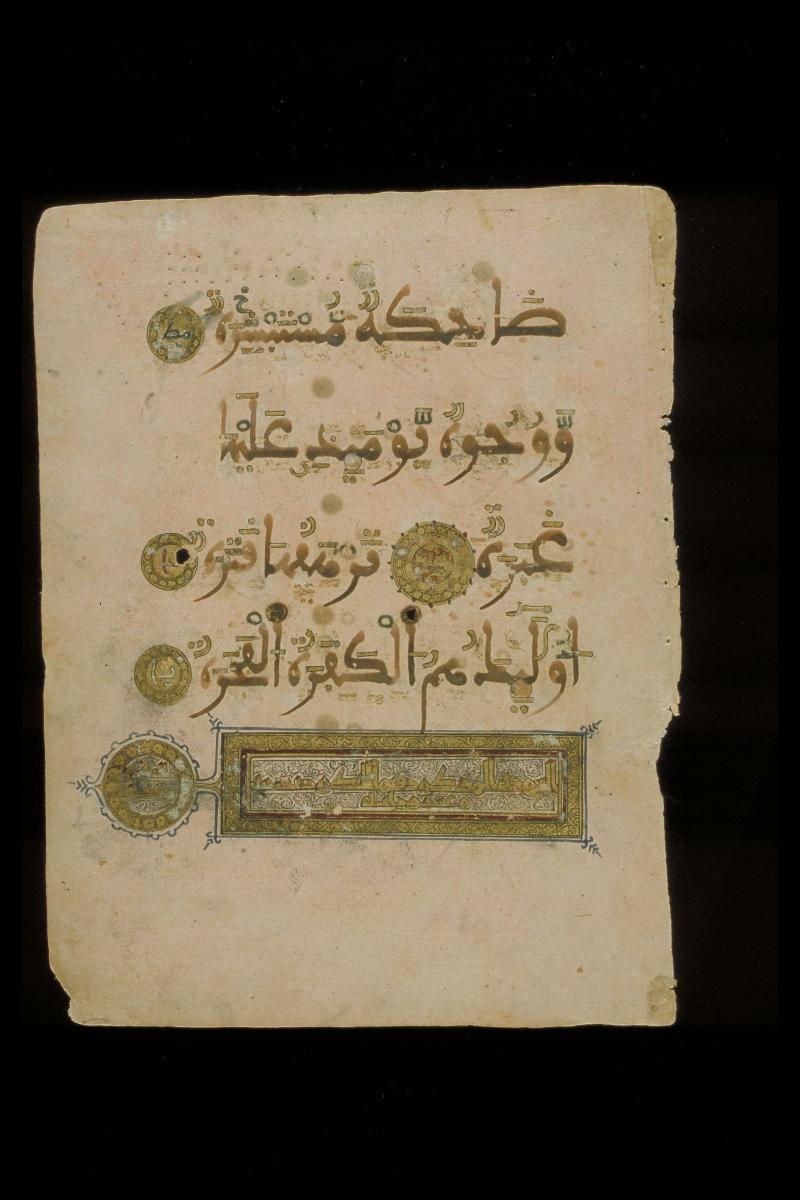 ضَاحِكَةٌ مُّسْتَبْشِرَةٌ
وَّوُجُوهٌ يَّوْمَئِذٍ عَلَيْهَا
غَبَرَةٌ تَرْهَقُهَا قَتَرَةٌ
أُولَٰئِكَ هُمُ الْكَفَرَةُ الْفَجَرَةُ